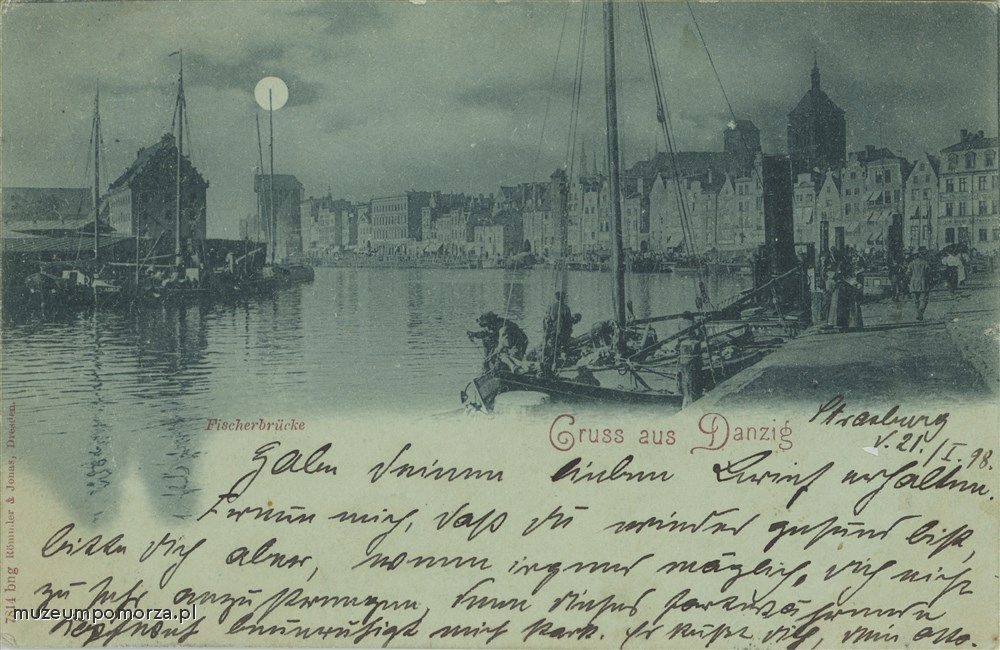 Fischerbrücke
Gruss aus Danzig
Strasburg
v. 21./I. 98.
Habe Deinen lieben Brief erhalten.
Freue mich, daß du wieder gesund bist,
bitte dich aber, wenn irgend möglich, dich nicht
zu sehr anzustrengen, denn dieses fortwährende
Kopfweh beunruhigt mich stark. Es küßt dich, dein Otto.
7814 bng Römmler & Jonas, Dresden.
muzeumpomorza.pl